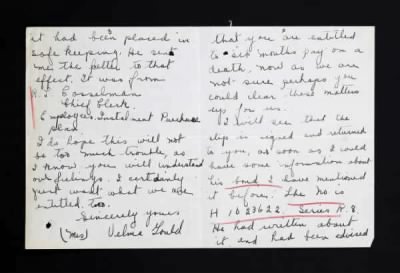 it had been placed in
safe keeping. He sent
me the letter to that
effect. It was from
Casselman
Chief Clerk.
Employees Instalment Purchase
plan
I do hope this will not
be too much trouble, as
I know you will understand
our feelings. I certainly
just want what we are
entitled to.
Sincerely yours
(Mrs) Velma Gould
that you are entitled
to six months pay on a
death, now as we are
not sure perhaps you
could clear these matters
up for us.
I will see that the
slip is signed and returned
to you, as soon as I could
have some information about
his bond I have mentioned
it before. The No is
H 1023622. Series K.8
He had written about
it and had been advised